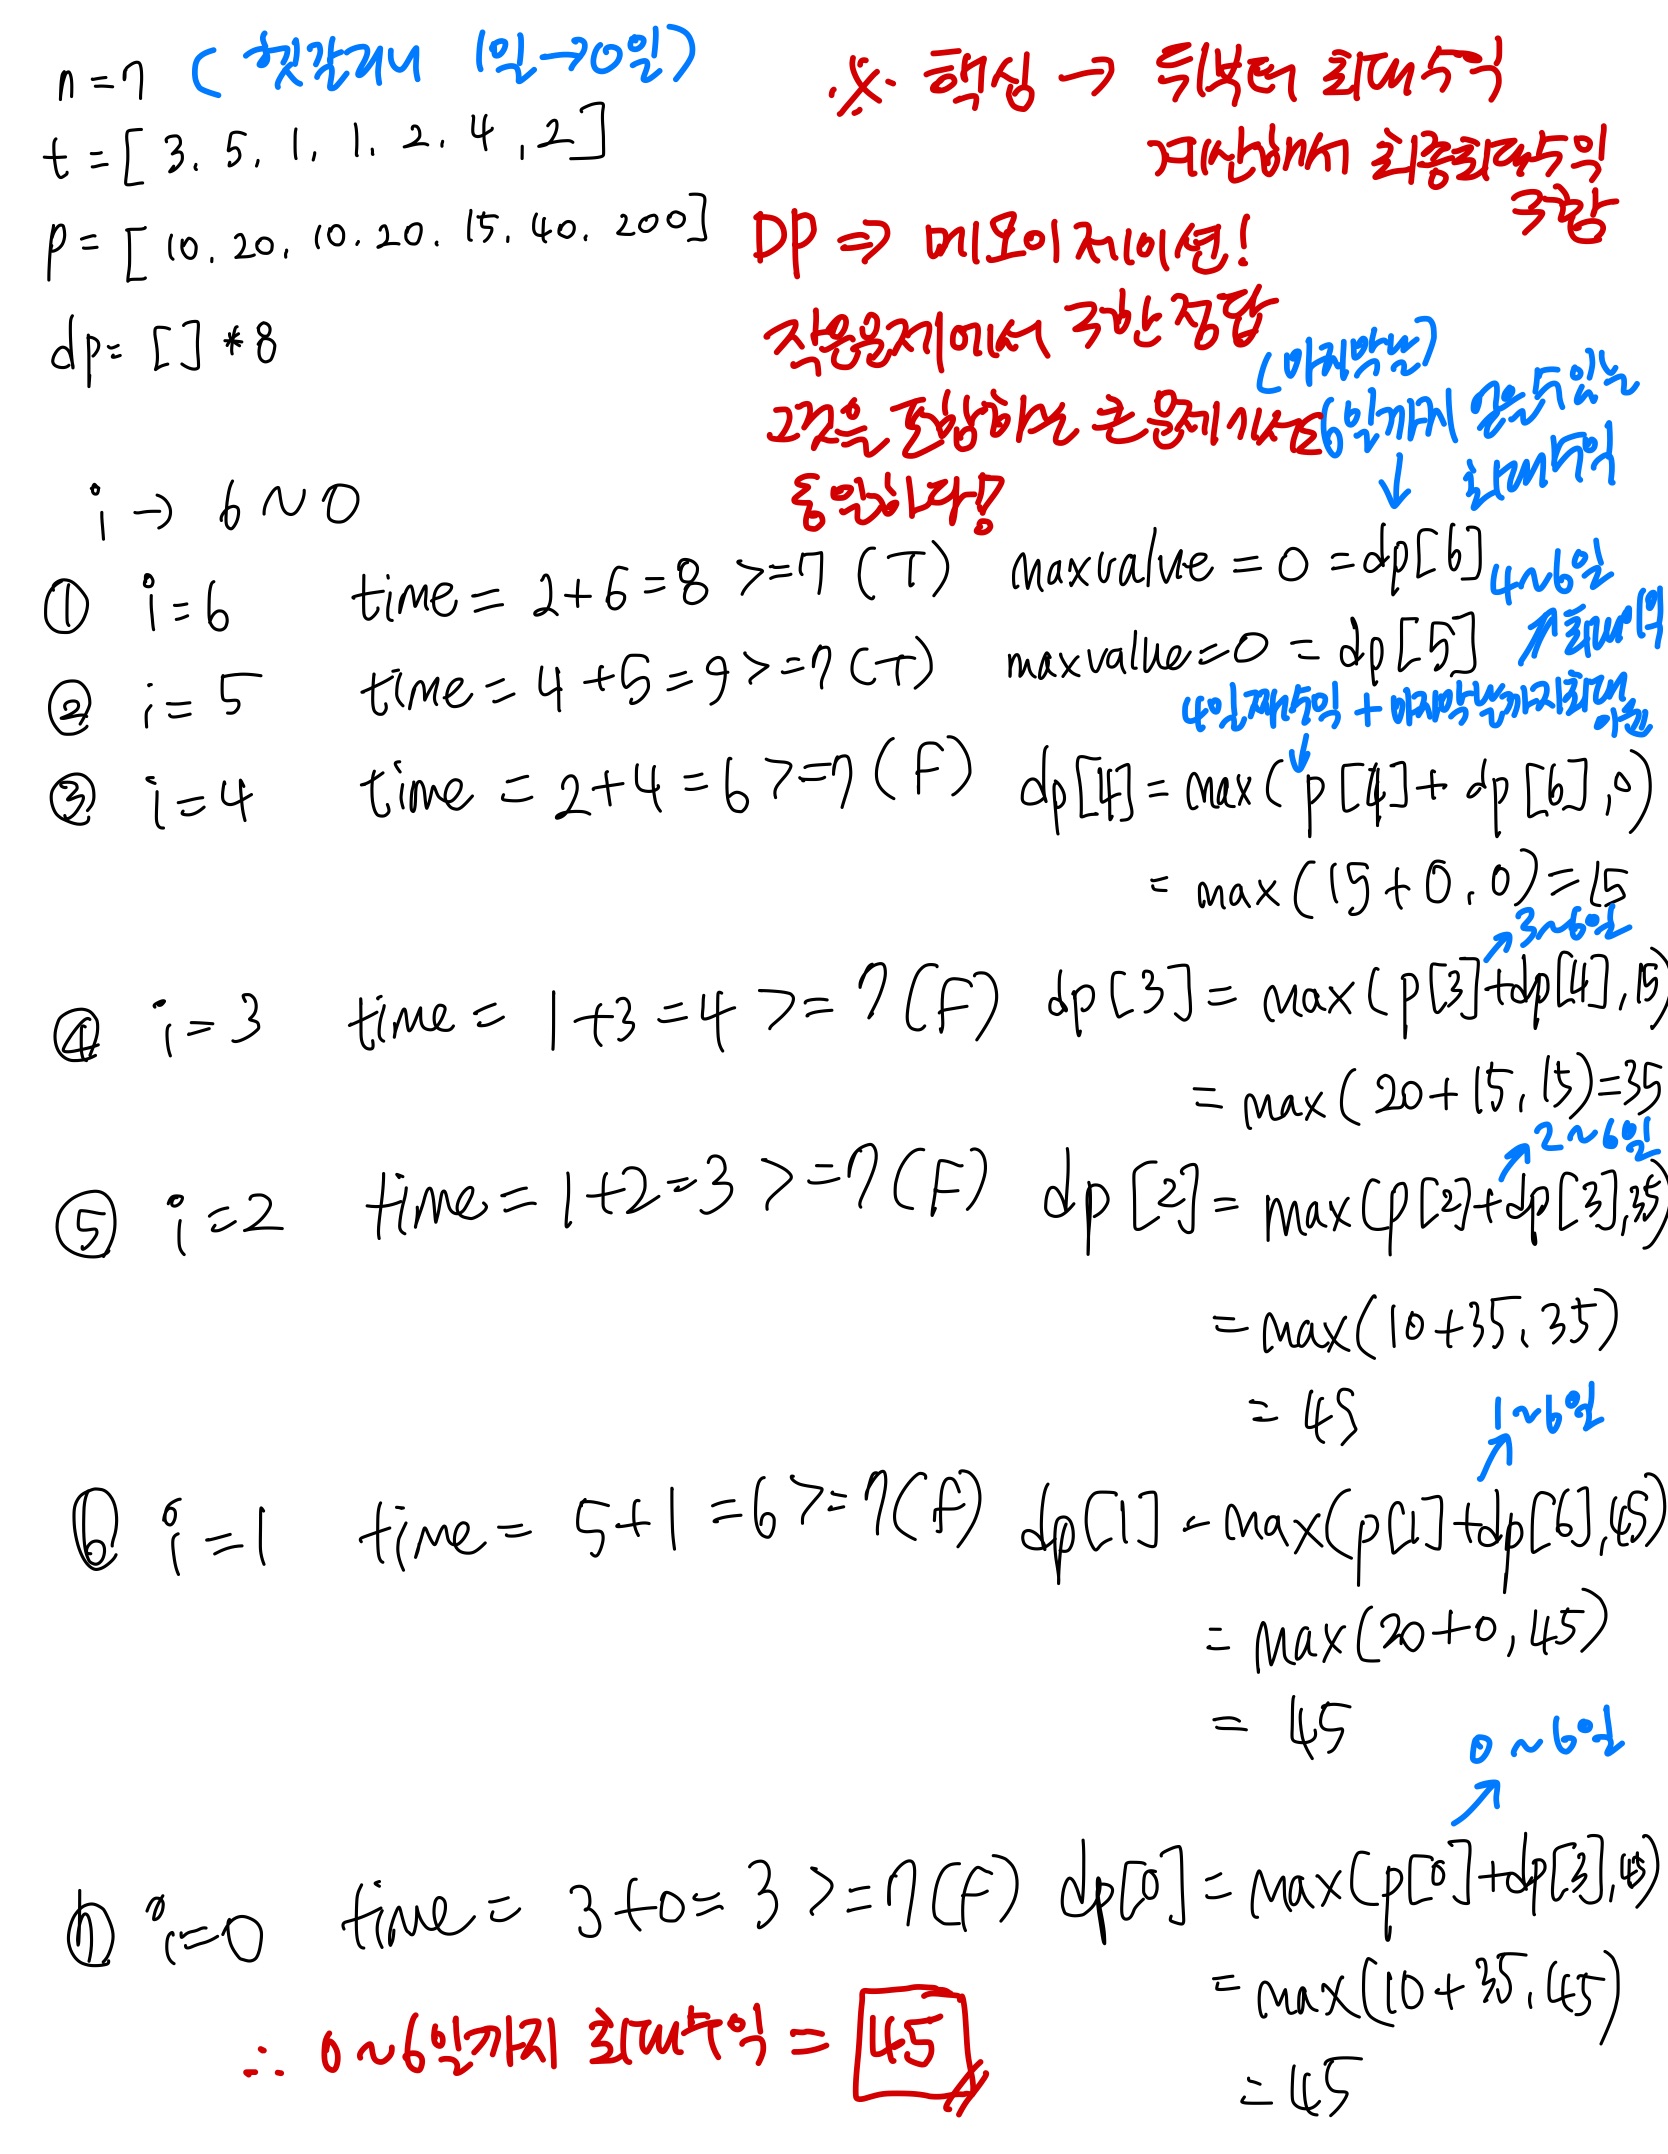 n=7 (헷갈리니 1일→0일)
t=[3, 5, 1, 1, 2, 4, 2]
p=[10, 20, 10, 20, 15, 40, 200]
dp=[]*8
※ 핵심 → 뒤부터 최대수익
계산해서 최종최대수익
구함
DP ⇒ 메모이제이션!
작은문제에서 구한 정답
그것을 포함하는 큰 문제에서도
동일하다!
i → 6 ~ 0
(마지막날)
6일까지 얻을 수 있는
최대수익
↓
① i=6 time = 2+6=8 >=7 (T) maxvalue = 0 = dp[6]
4~6일
↗최대이익
② i=5 time = 4+5=9 >=7 (T) maxvalue=0 = dp[5]
4일째수익 + 마지막날까지최대
↓
③ i=4 time = 2+4=6 >=7 (F) dp[4] = max(p[4]+dp[6],0)
= max(15+0,0)=15
↗3~6일
④ i=3 time = 1+3=4 >= 7 (F) dp[3] = max(p[3]+dp[4],15)
= max(20+15,15)=35
↗2~6일
⑤ i=2 time = 1+2=3 >=7 (F) dp[2] = max(p[2]+dp[3],35)
= max(10+35,35)
= 45
↗1~6일
⑥ i=1 time = 5+1=6 >=7 (F) dp[1] = max(p[1]+dp[6],45)
= max(20+0,45)
= 45
↗0~6일
⑦ i=0 time = 3+0=3 >=7 (F) dp[0] = max(p[0]+dp[3],45)
= max(10+35,45)
= 45
∴ 0~6일까지 최대수익 = 45